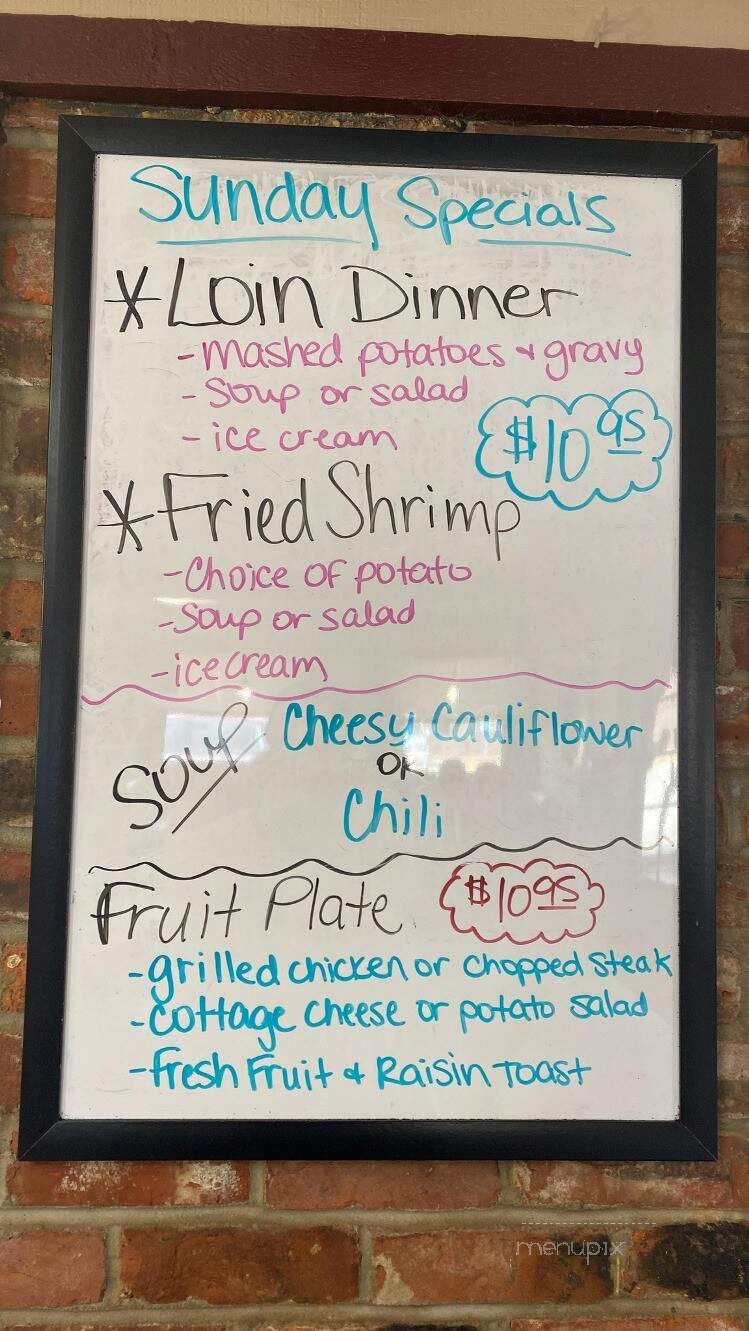 Sunday Specials
*Loin Dinner
-mashed potatoes & gravy
-soup or salad
-ice cream
$10 95
*Fried Shrimp
-Choice of potato
-soup or salad
-ice cream
Soup Cheesy Cauliflower
OR
Chili
Fruit Plate $10 95
-grilled chicken or chopped steak
-cottage cheese or potato salad
-fresh Fruit & Raisin Toast
menupix